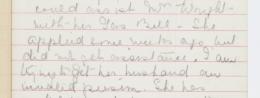 could assist Mrs Wright
with her Gas Bill - She
applied some weeks ago, but
did not get assistance. I am
trying to get her husband an
invalid pension. She has